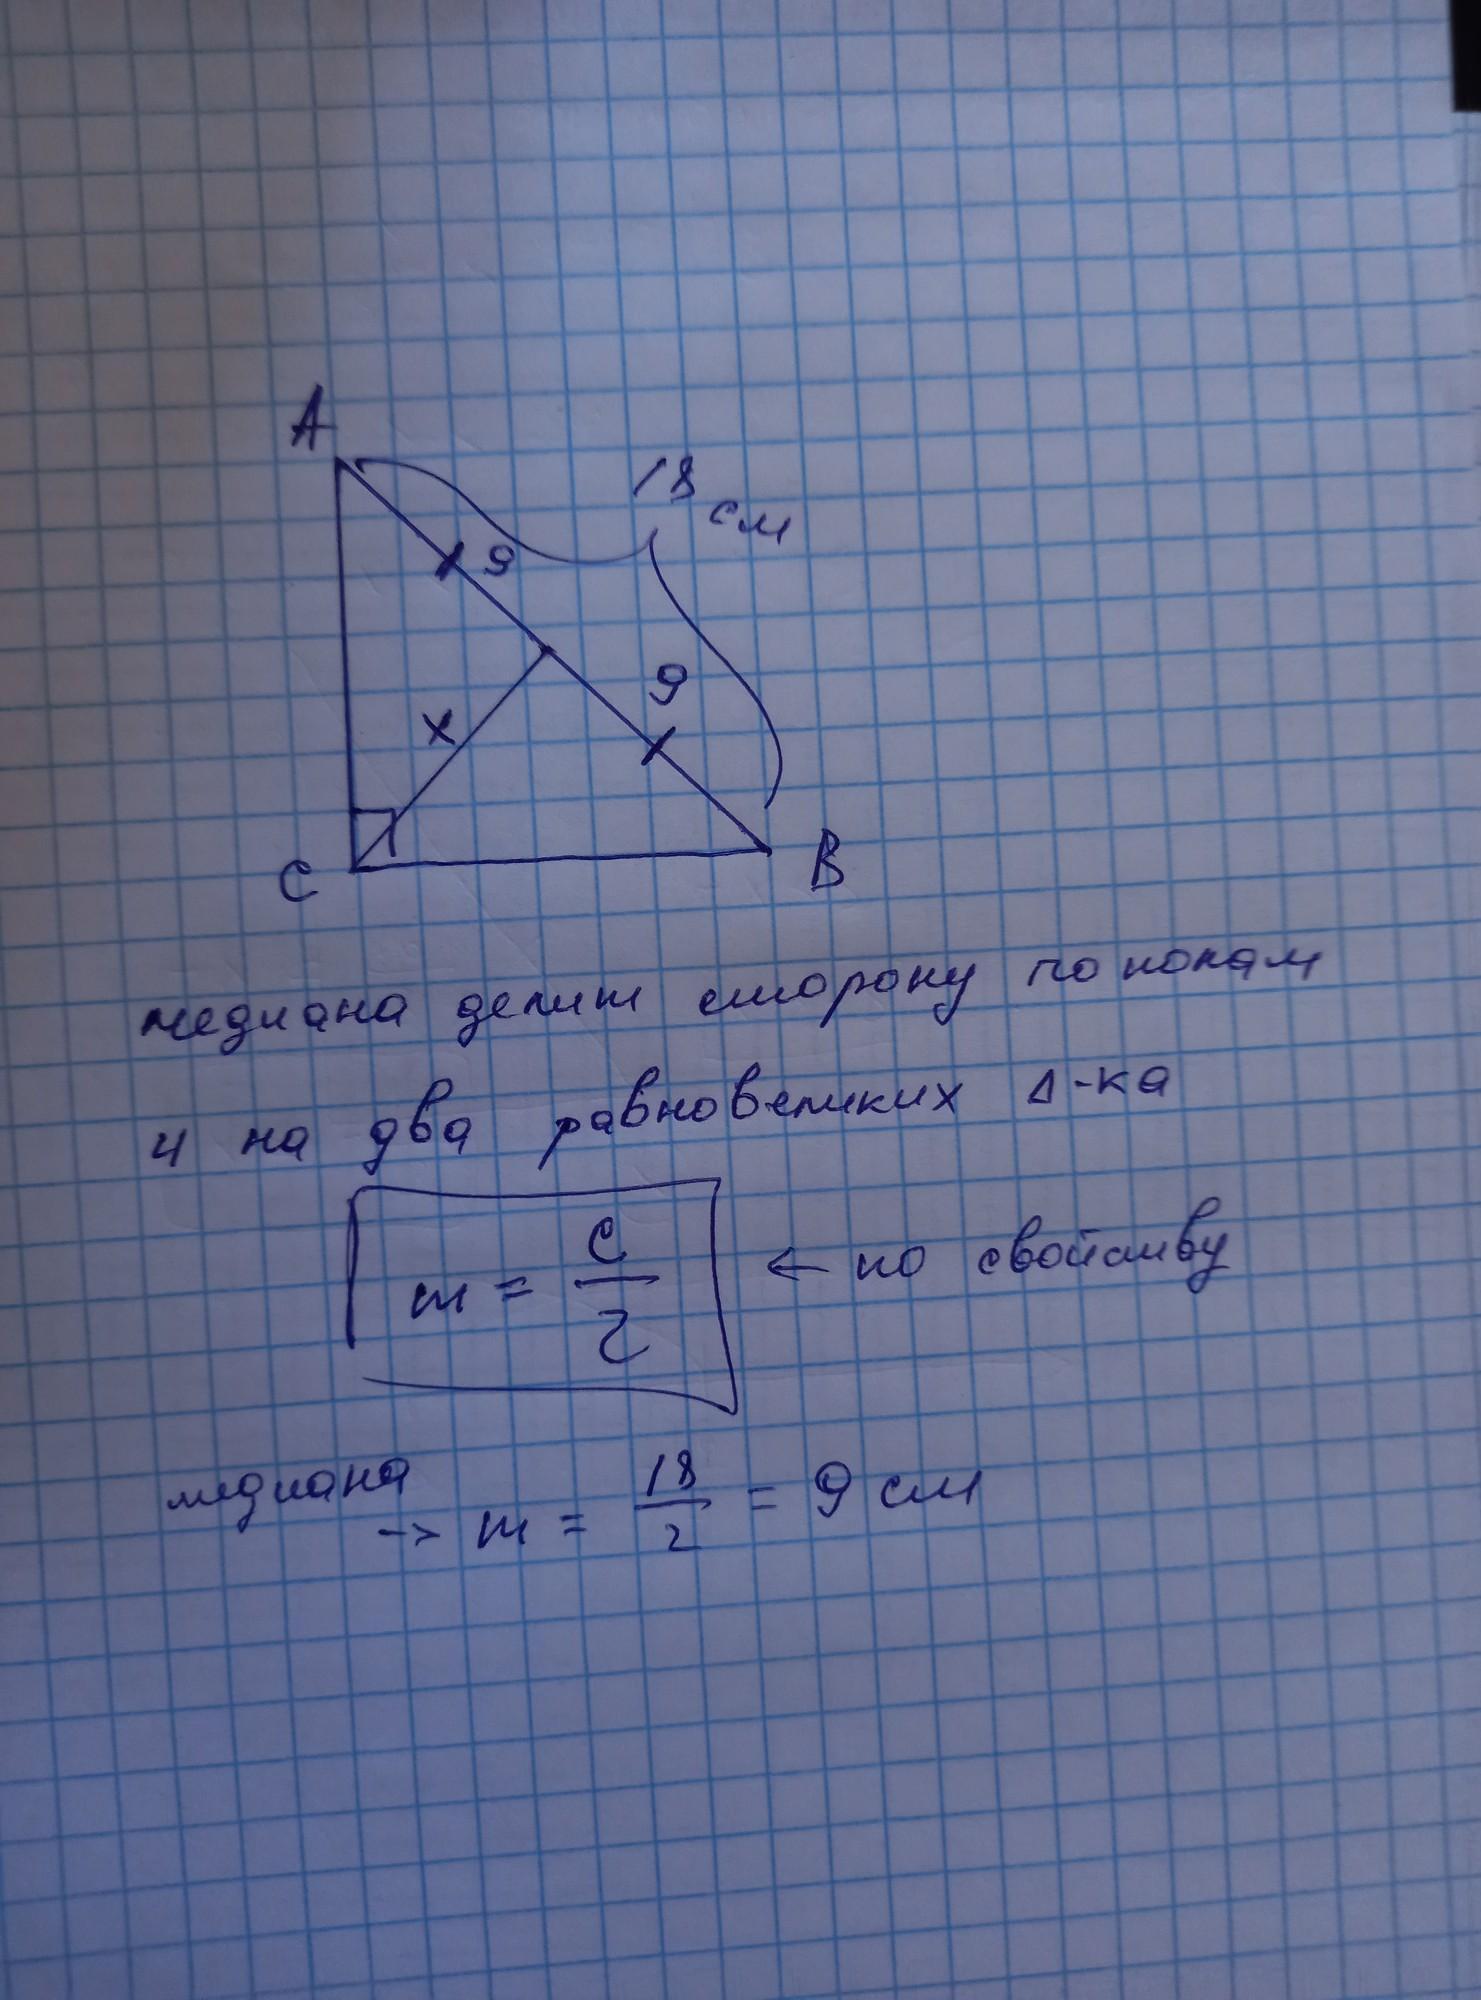 A
18 см
9
9
x
C
B
медиана делит сторону пополам
и на два равновеликих Δ-ка
m = c/2 ← по свойству
медиана
-> m = 18/2 = 9 см